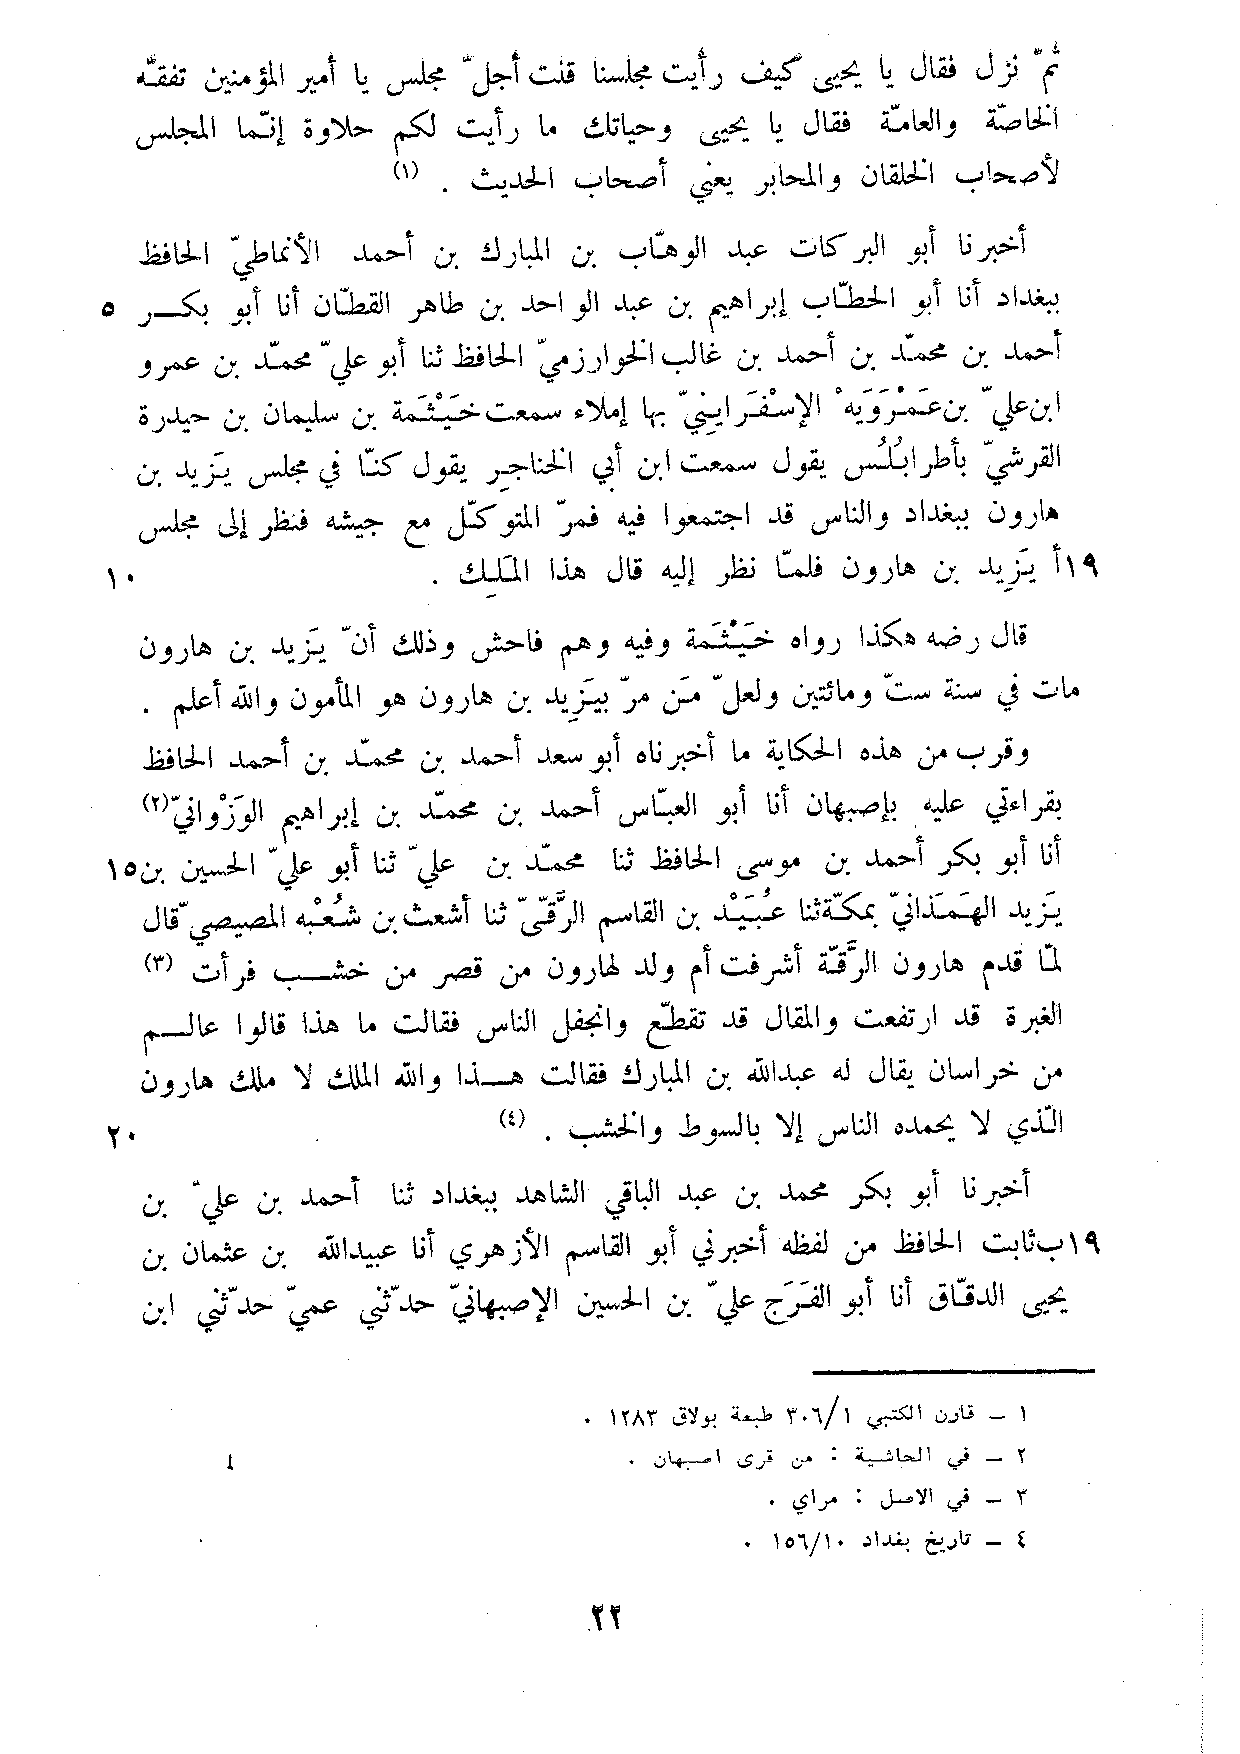 ثمّ نزل فقال يا يحيى كيف رأيت مجلسنا قلت أجلّ مجلس يا أمير المؤمنين تفقّه
الخاصّة والعامّة فقال يا يحيى وحياتك ما رأيت لكم حلاوة إنّما المجلس
لأصحاب الخلقان والمحابر يعني أصحاب الحديث . (١)
أخبرنا أبو البركات عبد الوهّاب بن المبارك بن أحمد الأنماطيّ الحافظ
ببغداد أنا أبو الخطّاب إبراهيم بن عبد الواحد بن طاهر القطّان أنا أبو بكـــر ٥
أحمد بن محمّد بن أحمد بن غالب الخوارزميّ الحافظ ثنا أبو عليّ محمّد بن عمرو
ابن عليّ بن عَمْرَوَيْه الإسْفَرَايِنيّ بها إملاء سمعت خَيْثَمة بن سليمان بن حيدرة
القرشيّ بأطرابُلُس يقول سمعت ابن أبي الخناجِر يقول كنّا في مجلس يَزِيد بن
هارون ببغداد والناس قد اجتمعوا فيه فمرّ المتوكّل مع جيشه فنظر إلى مجلس
١٩أ يَزِيد بن هارون فلمّا نظر إليه قال هذا المَلِك . ١٠
قال رضه هكذا رواه خَيْثَمة وفيه وهم فاحش وذلك أنّ يَزِيد بن هارون
مات في سنة ستّ ومائتين ولعلّ مَن مرّ بيَزِيد بن هارون هو المأمون والله أعلم .
وقرب من هذه الحكاية ما أخبرناه أبو سعد أحمد بن محمّد بن أحمد الحافظ
بقراءتي عليه بإصبهان أنا أبو العبّاس أحمد بن محمّد بن إبراهيم الوَزْوانيّ(٢)
أنا أبو بكر أحمد بن موسى الحافظ ثنا محمّد بن عليّ ثنا أبو عليّ الحسين بن ١٥
يَزِيد الهَمَذانيّ بمكّة ثنا عُبَيْد بن القاسم الرَّقّيّ ثنا أشعث بن شُعْبه المصيصيّ قال
لمّا قدم هارون الرَّقّة أشرفت أم ولد لهارون من قصر من خشـــب فرأت (٣)
الغبرة قد ارتفعت والمقال قد تقطّع وانجفل الناس فقالت ما هذا قالوا عالـــم
من خراسان يقال له عبدالله بن المبارك فقالت هـــذا والله الملك لا ملك هارون
الّذي لا يحمده الناس إلا بالسوط والخشب . (٤) ٢٠
أخبرنا أبو بكر محمد بن عبد الباقي الشاهد ببغداد ثنا أحمد بن عليّ بن
١٩ب ثابت الحافظ من لفظه أخبرني أبو القاسم الأزهري أنا عبيدالله بن عثمان بن
يحيى الدقّاق أنا أبو الفَرَج عليّ بن الحسين الإصبهانيّ حدّثني عميّ حدّثني ابن
١ – قارن الكتبي ٣٠٦/١ طبعة بولاق ١٢٨٣ .
٢ – في الحاشية : من قرى اصبهان .
٣ – في الاصل : مراي .
٤ – تاريخ بغداد ١٥٦/١٠ .
٢٢